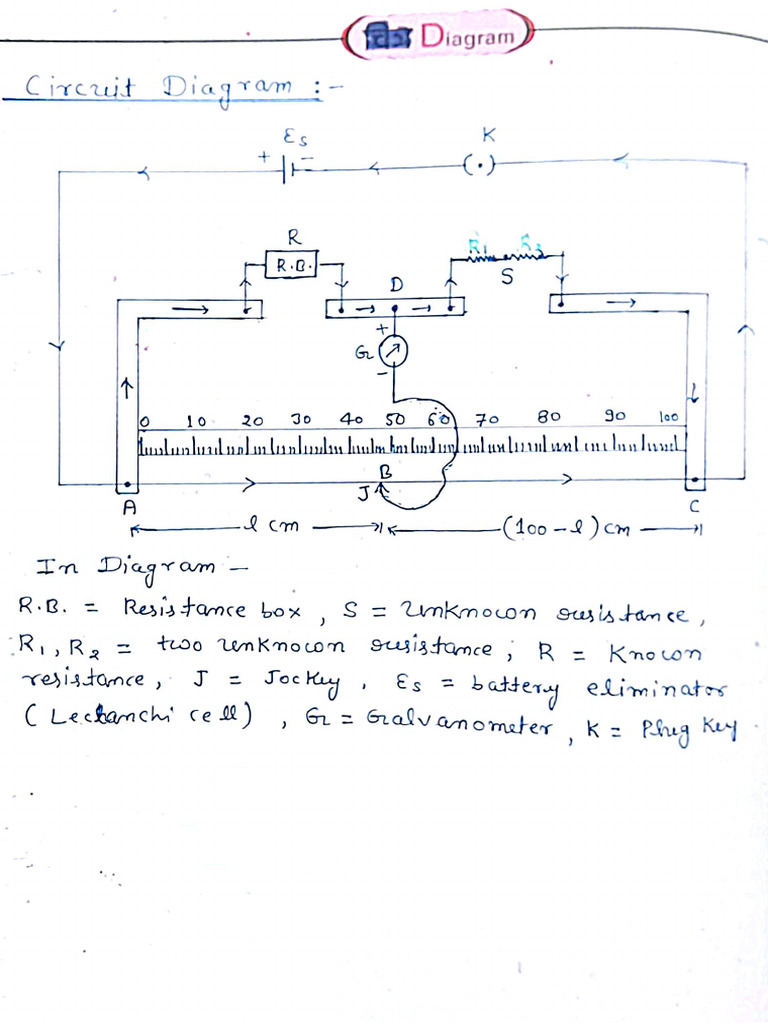 Diagram
Circuit Diagram :-
Es K
+ -
(•)
R R1 R2
R.B.
D S
+
G
-
0 10 20 30 40 50 60 70 80 90 100
B
J
A C
l cm (100-l) cm
In Diagram -
R.B. = Resistance box , S = Unknown resistance ,
R1, R2 = two unknown resistance ; R = Known
resistance , J = Jockey , Es = battery eliminator
(Leclanchi cell) , G = Galvanometer , K = Plug Key